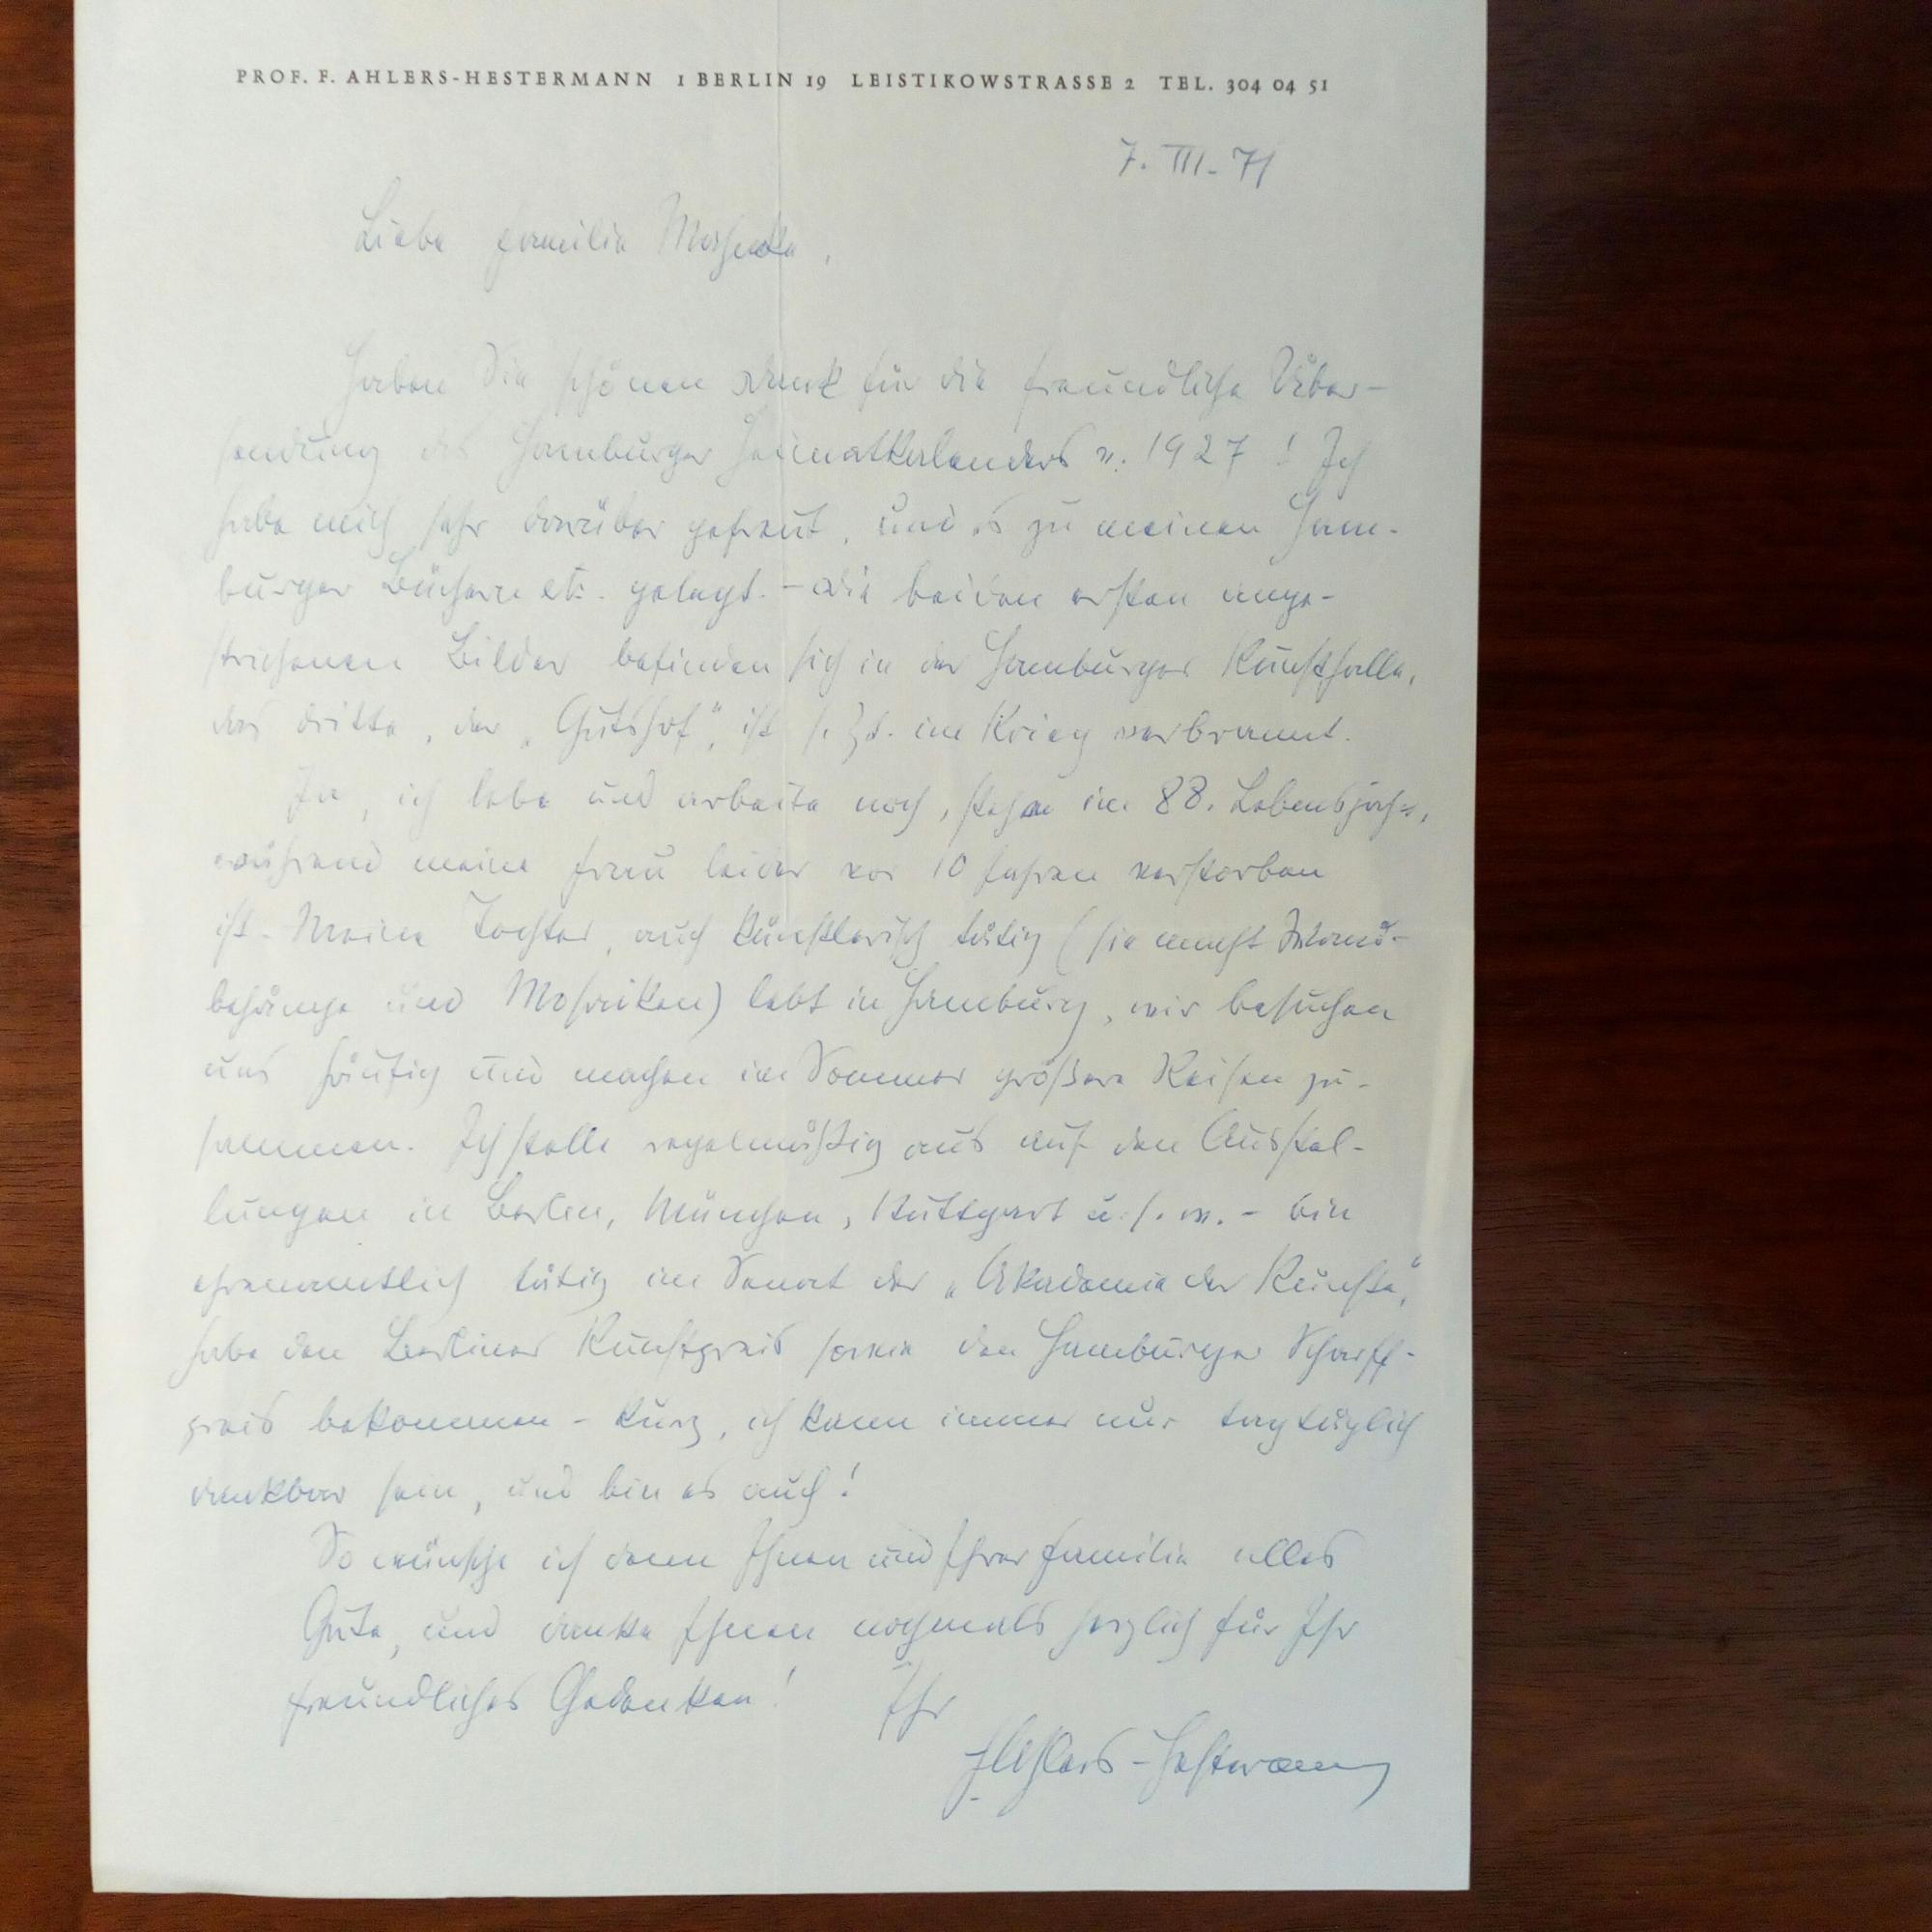 PROF. F. AHLERS-HESTERMANN 1 BERLIN 19 LEISTIKOWSTRASSE 2 TEL. 304 04 51
7. III. 71
Liebe Familie
Haben Sie schönen Dank für die freundliche Über-
sendung des Hamburger Heimatkalenders v. 1927! Ich
habe mich sehr darüber gefreut, und es zu meinen Ham-
burger Büchern etc. gelegt. – Die beiden ersten ange-
strichenen Bilder befinden sich in der Hamburger Kunsthalle,
das dritte, der „Gutshof", ist s. Zt. im Krieg verbrannt.
Ja, ich lebe und arbeite noch, stehe im 88. Lebensjahr,
während meine Frau leider vor 10 Jahren verstorben
ist. Meine Tochter, auch künstlerisch tätig (sie macht Wand-
behänge und Mosaiken) lebt in Hamburg, wir besuchen
uns häufig und machen im Sommer größere Reisen zu-
sammen. Ich stelle regelmäßig aus auf den Ausstel-
lungen in Berlin, München, Stuttgart u.s.w. – bin
ehrenamtlich tätig im Senat der „Akademie der Künste",
habe den Berliner Kunstpreis sowie den Hamburger Scharff-
preis bekommen – kurz, ich kann immer nur tagtäglich
dankbar sein, und bin es auch!
So wünsche ich denn Ihnen und Ihrer Familie alles
Gute, und danke Ihnen nochmals herzlich für Ihr
freundliches Gedenken! Ihr
F. Ahlers-Hestermann